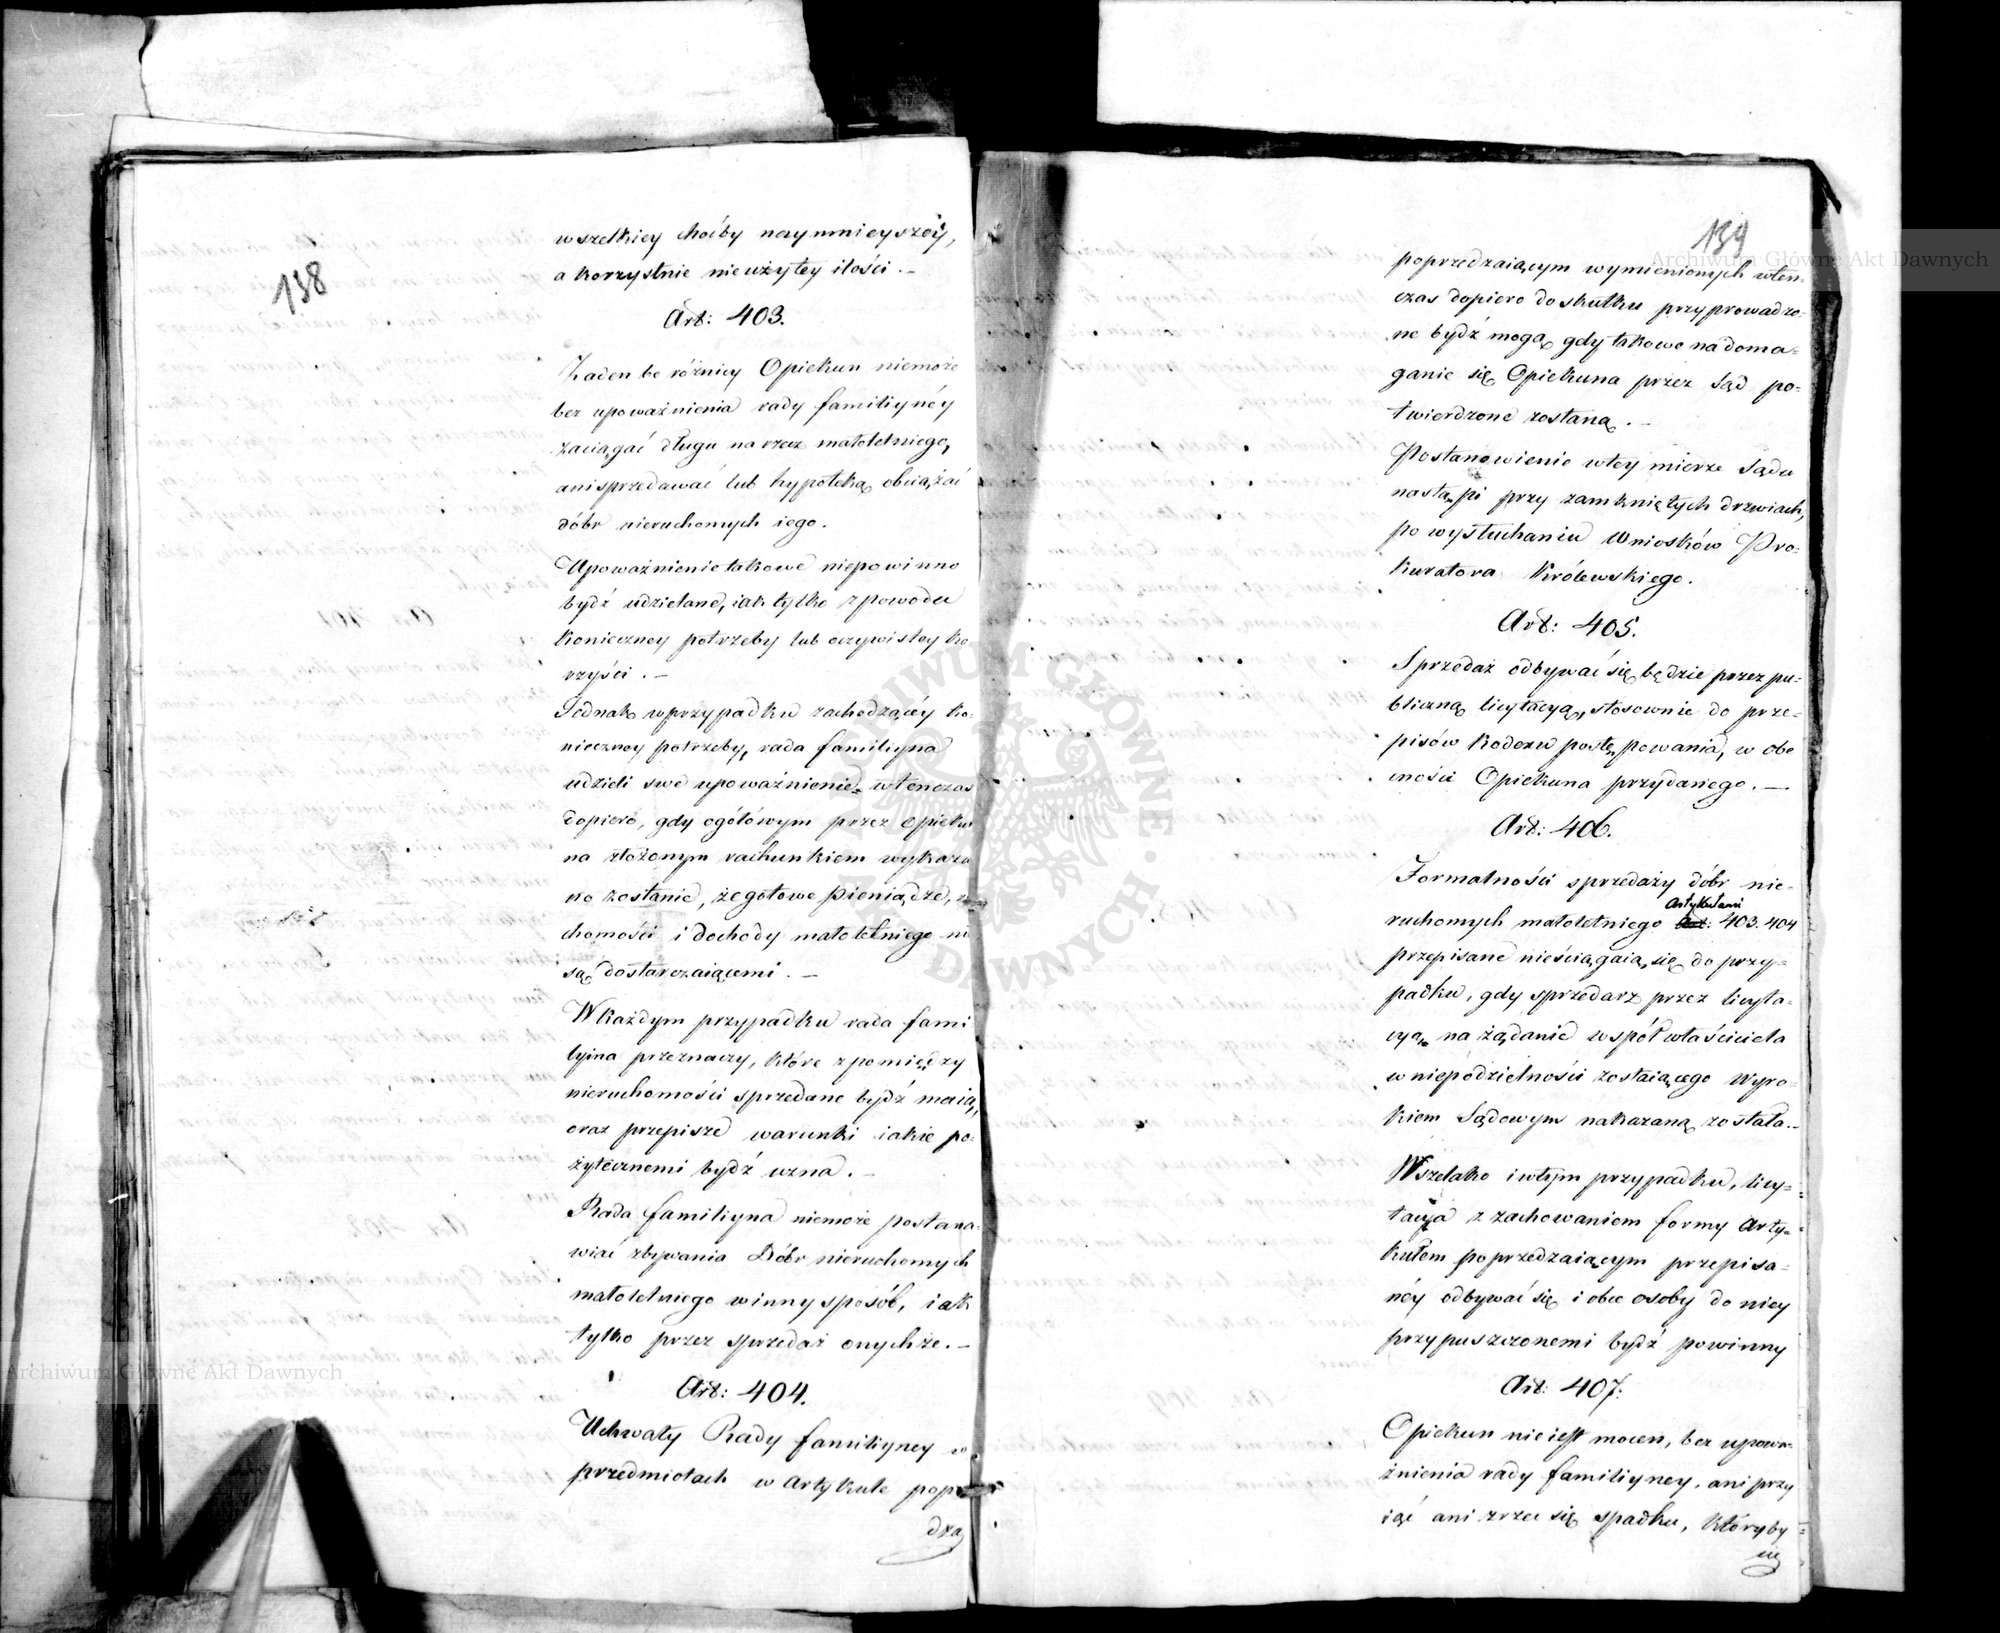 138
wszelkiey choćby naymnieyszéy,
a korzystnie nieużytey ilości. –
Art: 403.
Żaden be różnicy Opiekun niemoże
bez upoważnienia rady familiynéy
zaciągać długu na rzecz małoletniego,
ani sprzedawać lub hypoteką obciążać
dóbr nieruchomych iego.
Upoważnienie takowe niepowinno
bydź udzielane, iak tylko z powodu
konieczney potrzeby lub oczywistey ko
rzyści. –
Jednak w przypadku zachodzącéy ko-
nieczney potrzeby, rada familiyna
udzieli swe upoważnienie wtenczas
dopiero, gdy ogółowym przez Opieku
na złożonym rachunkiem wykaza
no zostanie, że gotowe pieniądze,
chomości i dochody małoletniego ni
są dostarczaiącemi. –
W każdym przypadku rada fami
lyina przeznaczy, które z pomiędzy
nieruchomości sprzedane bydź maią,
oraz przepisze warunki iakie po-
żytecznemi bydź uzna. –
Rada familiyna niemoże postana-
wiać zbywania Dóbr nieruchomych
małoletniego w inny sposób, iak
tylko przez sprzedaż onychże. –
Art: 404.
Uchwały Rady familiyney w
przedmiotach w Artykule popr
dza
139
poprzedzaiącym wymienionych wten-
czas dopiero do skutku przyprowadzo-
ne bydź mogą, gdy takowe na doma-
ganie się Opiekuna przez Sąd po-
twierdzone zostaną. –
Postanowienie w tey mierze Sądu
nastąpi przy zamkniętych drzwiach,
po wysłuchaniu Wniosków Pro-
kuratora Królewskiego.
Art: 405.
Sprzedaż odbywać się będzie przez pu-
bliczną licytacyą, stosownie do prze-
pisów Kodexu postępowania, w obe
cności Opiekuna przydanego. –
Art: 406.
Formalności sprzedaży dóbr nie-
Artykułami
ruchomych małoletniego Art: 403. 404
przepisane nieściągaią się do przy-
padku, gdy sprzedarz przez licyta-
cyą, na żądanie współwłaściciela
w niepodzielności zostaiącego Wyro-
kiem Sądowym nakazaną została. –
Wszelako i w tym przypadku, licy-
tacyia z zachowaniem formy Arty-
kułem poprzedzaiącym przepisa-
néy odbywać się i obce osoby do niey
przypuszczonemi bydź powinny
Art: 407.
Opiekun nie iest mocen, bez upowa-
żnienia rady familiyney, ani przy
iąć ani zrzec się spadku, któryby
Archiwum Główne Akt Dawnych
Archiwum Główne Akt Dawnych
ARCHIWUM GŁÓWNE AKT DAWNYCH